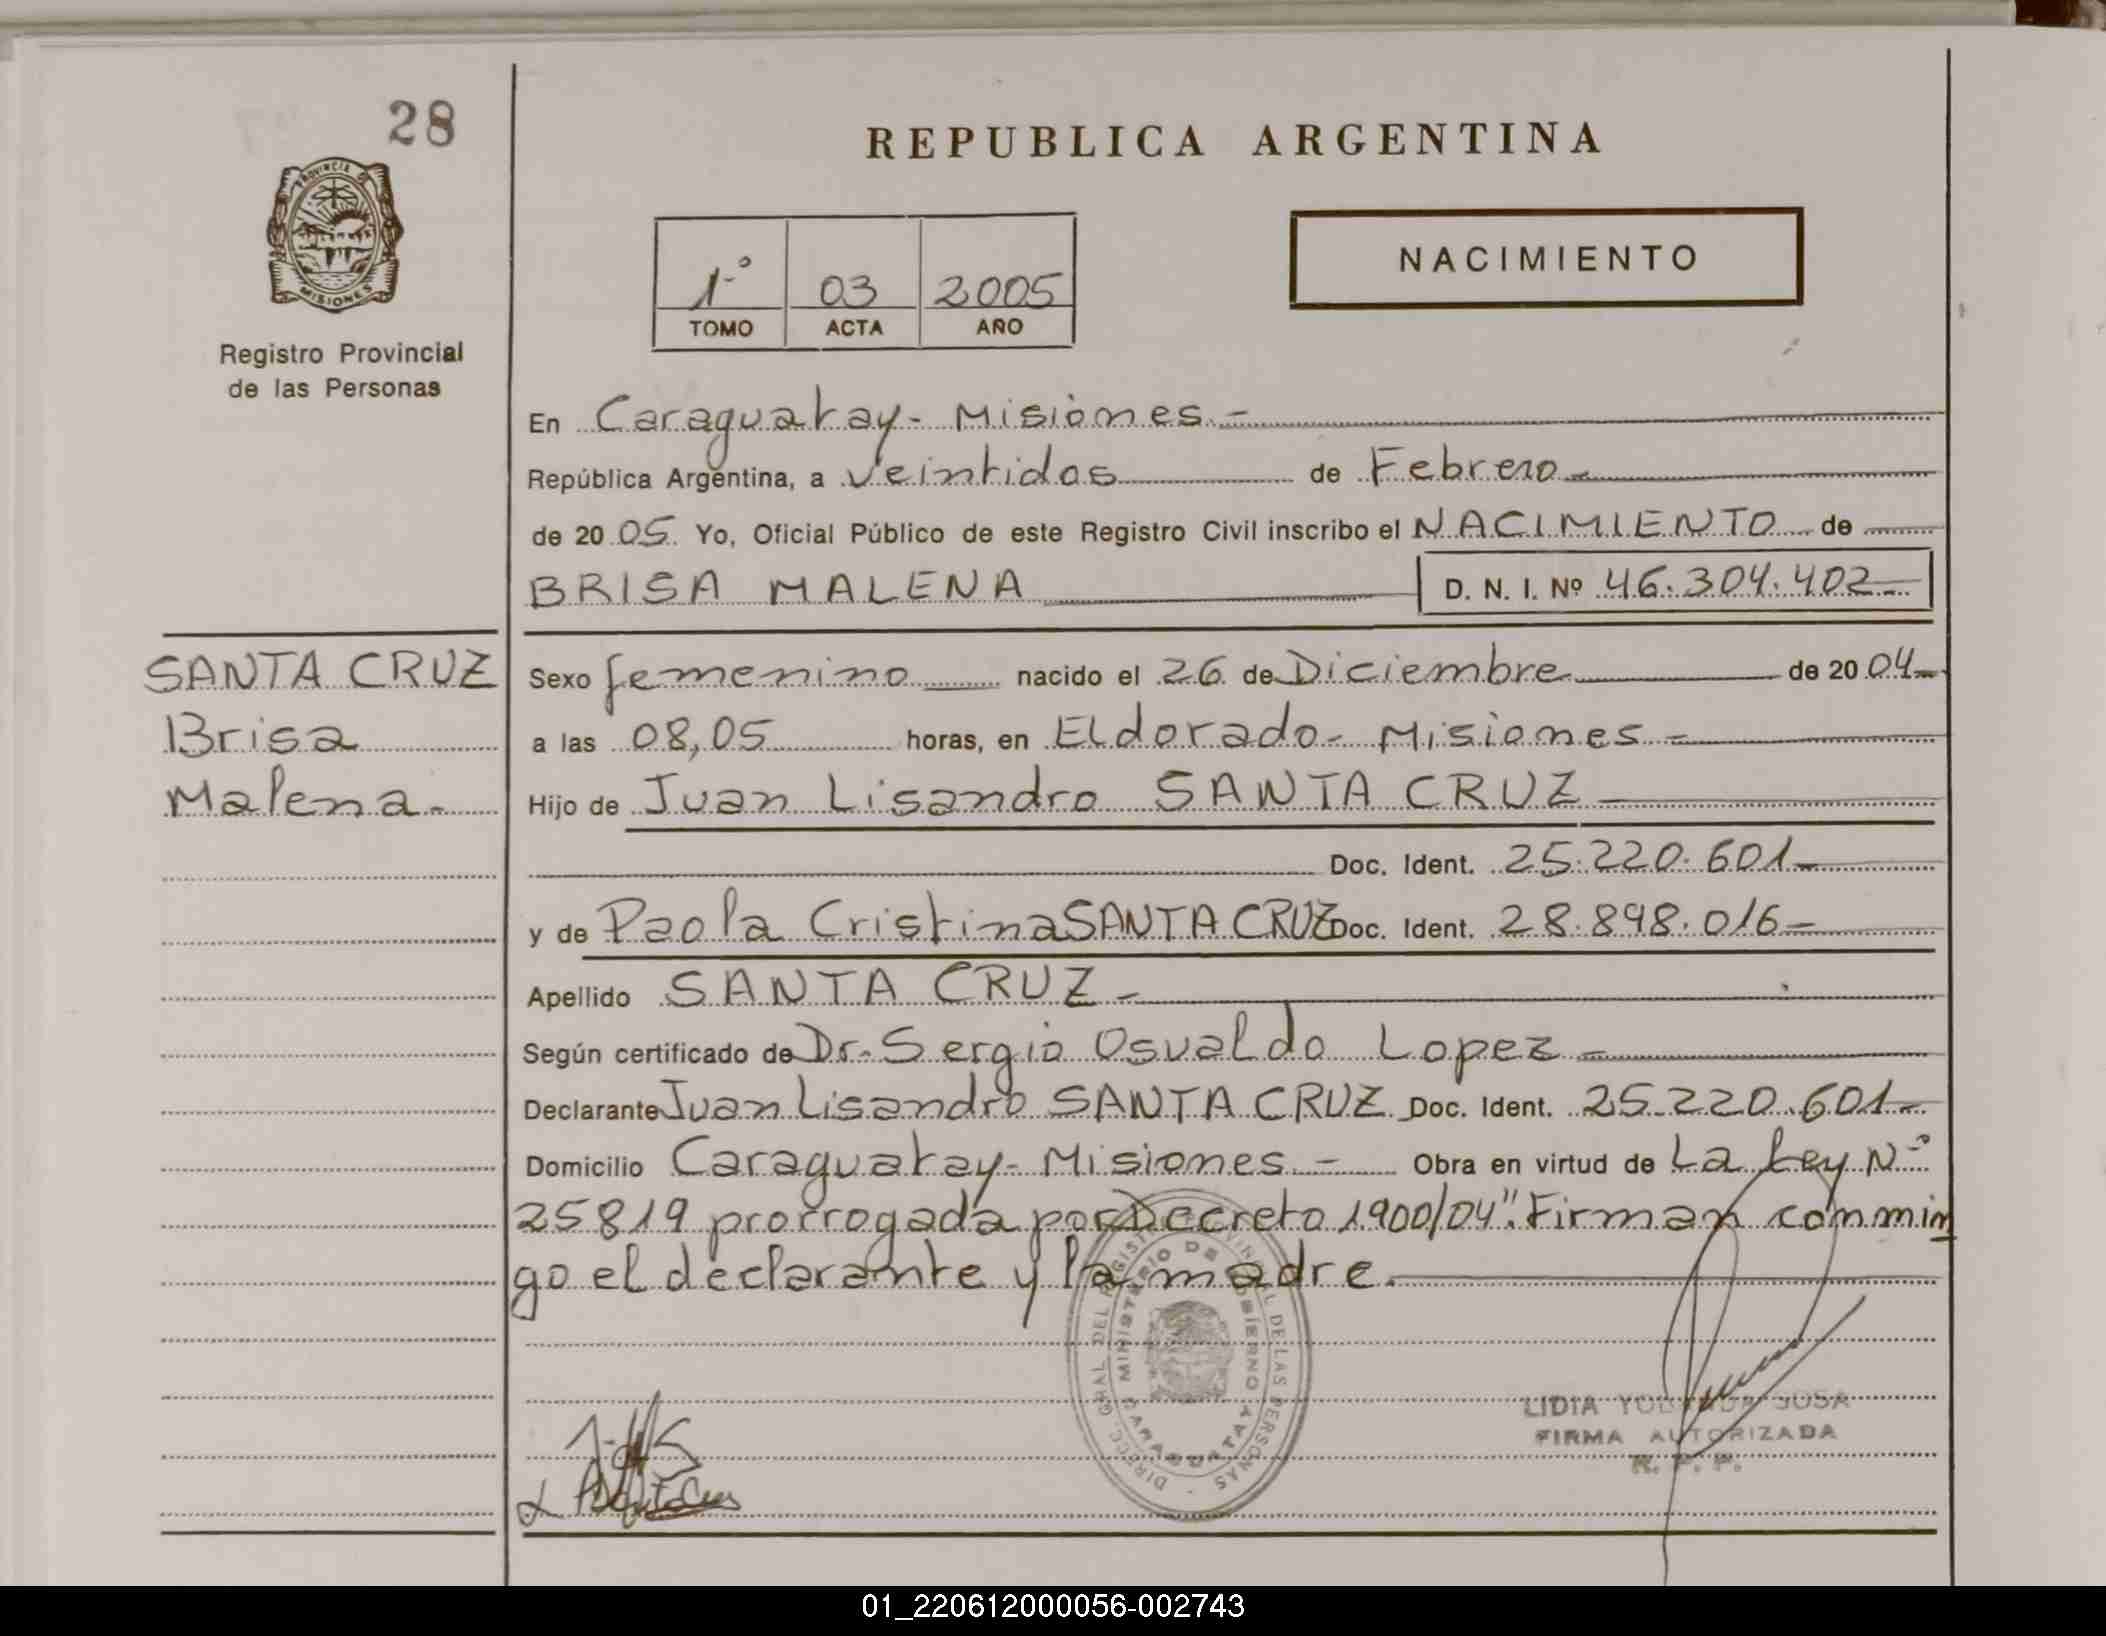 28
PROVINCIA DE
MISIONES
Registro Provincial
de las Personas
REPUBLICA ARGENTINA
1º 03 2005
TOMO ACTA AÑO
NACIMIENTO
En Caraguatay - Misiones.-
República Argentina, a veintidos de Febrero
de 2005 Yo, Oficial Público de este Registro Civil inscribo el NACIMIENTO de
BRISA MALENA D. N. I. Nº 46.304.402
SANTA CRUZ
Brisa
Malena.
Sexo femenino nacido el 26 de Diciembre de 2004
a las 08,05 horas, en Eldorado - Misiones -
Hijo de Juan Lisandro SANTA CRUZ
Doc. Ident. 25.220.601
y de Paola Cristina SANTA CRUZ Doc. Ident. 28.898.016
Apellido SANTA CRUZ -
Según certificado de Dr. Sergio Osvaldo Lopez -
Declarante Juan Lisandro SANTA CRUZ Doc. Ident. 25.220.601
Domicilio Caraguatay - Misiones - Obra en virtud de La Ley Nº
25819 prorrogada por Decreto 1900/04". Firman conmin
go el declarante y la madre.
DIRECC. GRAL DEL REGISTRO PROVINCIAL DE LAS PERSONAS
MINISTERIO DE GOBIERNO
CARAGUATAY
LIDIA SOSA
FIRMA AUTORIZADA
R. P. P.
01_220612000056-002743